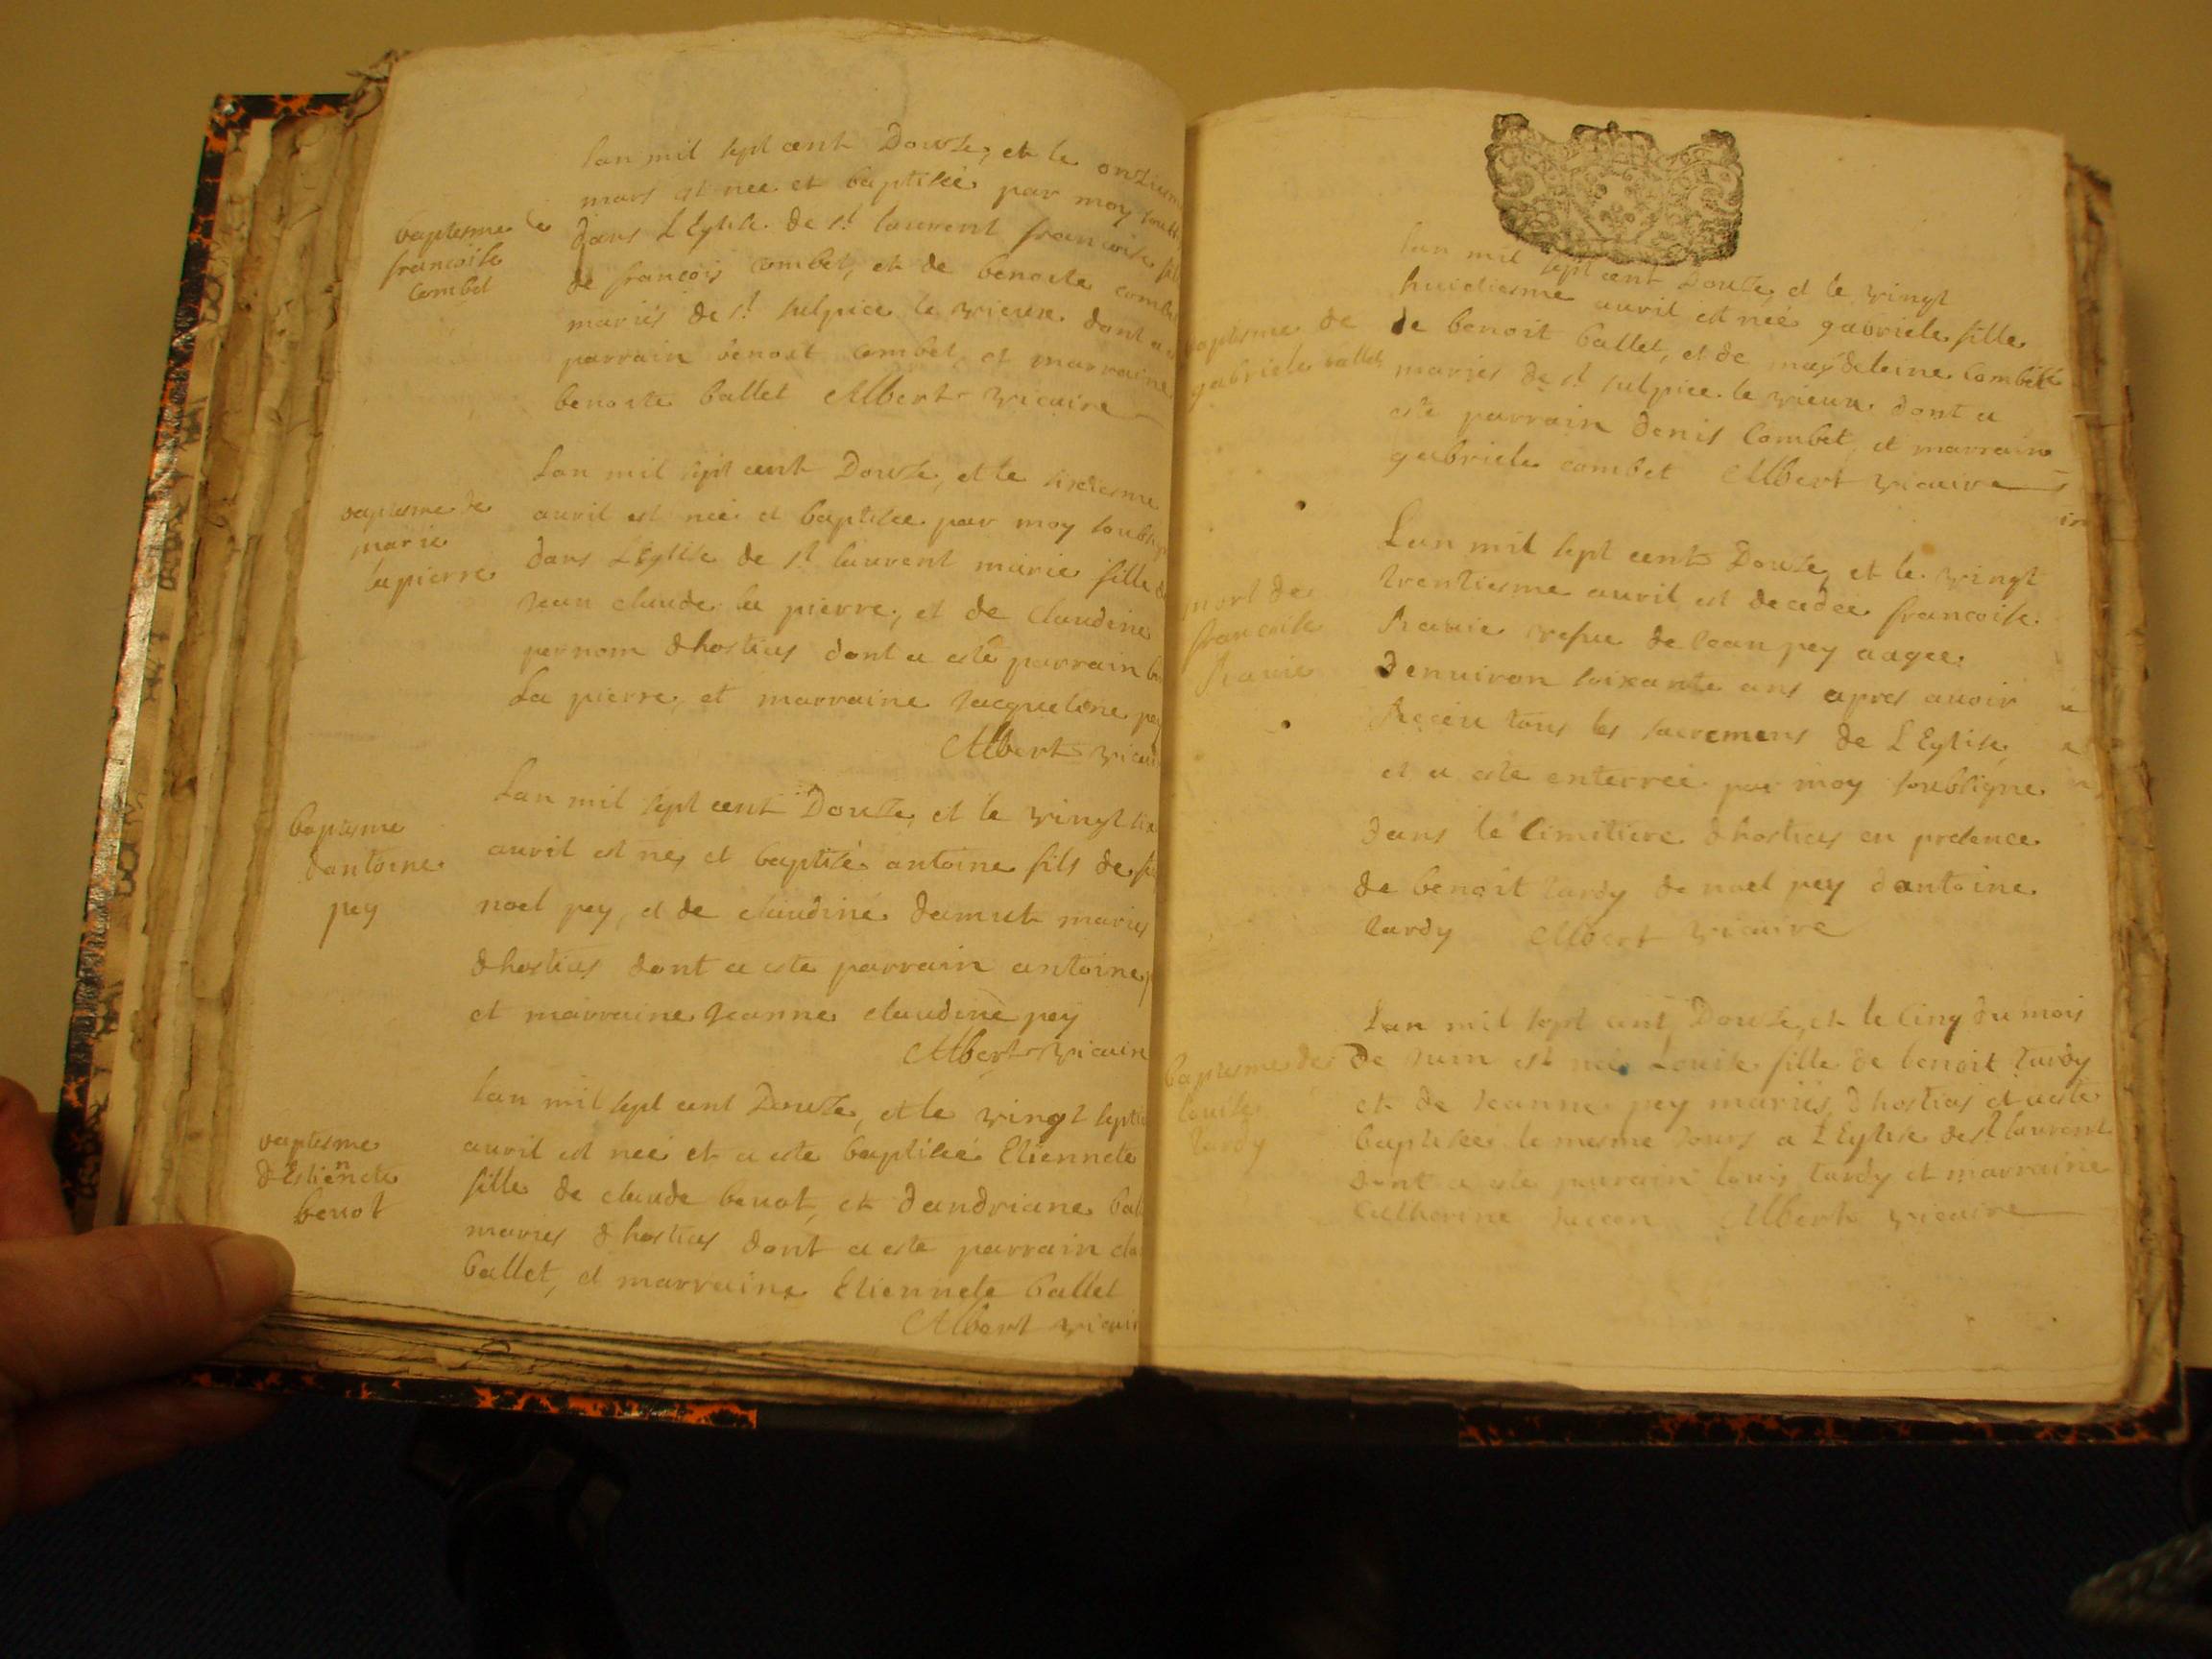 baptesme de
francoise
Combet
lan mil sept cent Douze, et le onzieme
mars est nee et baptisée par moy soub
dans LEglise de st laurent francoise fille
de francois combet, et de benoite combet
mariés de st sulpice le vieux dont a
parrain benoit combet, et marraine
benoite ballet Albert vicaire
baptesme de
marie
lapierre
Lan mil sept cent Douze, et le sixiesme
auril est neé et baptisée par moy soubsig
dans LEglise de st laurent marie fille de
jean claude la pierre, et de claudine
pernom dhostias dont a esté parrain
La pierre, et marraine Jacqueline pey
Albert vicai
baptesme
dantoine
pey
Lan mil sept cent Douze, et le vingt six
auril est ne, et baptisé antoine fils de
noel pey, et de claudine damut mariés
dhostias dont a esté parrain antoine p
et marraine Jeanne claudine pey
Albert vicaire
baptesme
dEstiennete
benot
lan mil sept cent Douze, et le vingt septie
auril est neé et a esté baptiseé Etiennete
fille de claude benot, et dandriane bal
mariés dhostias dont a esté parrain cla
ballet, et marraine Etiennete ballet
Albert vicai
baptesme de
gabriele ballet
lan mil sept cent Douze, et le vingt
huictiesme auril est neé gabriele fille
de benoit ballet, et de magdeleine Combet
mariés de st sulpice le vieux dont a
esté parrain denis Combet, et marraine
gabriele combet Albert vicaire
mort de
francoise
Rauie
Lan mil sept cent Douze, et le vingt
trentiesme auril est decedeé francoise
Rauie vefue de Jean pey aageé
denuiron soixante ans apres auoir
Receu tous les sacremens de LEglise
et a esté enterreé par moy soubsigné
dans le cimitiere dhostias en presence
de benoit tardy de noel pey dantoine
tardy Albert vicaire
baptesme de
louise
tardy
Lan mil sept cent Douze, et le Cinq du mois
de Juin est neé Louise fille de benoit tardy
et de Jeanne pey mariés dhostias et a esté
baptiseé le mesme Jours a LEglise de st laurent
dont a esté parrain louis tardy et marraine
Catherine Albert vicaire